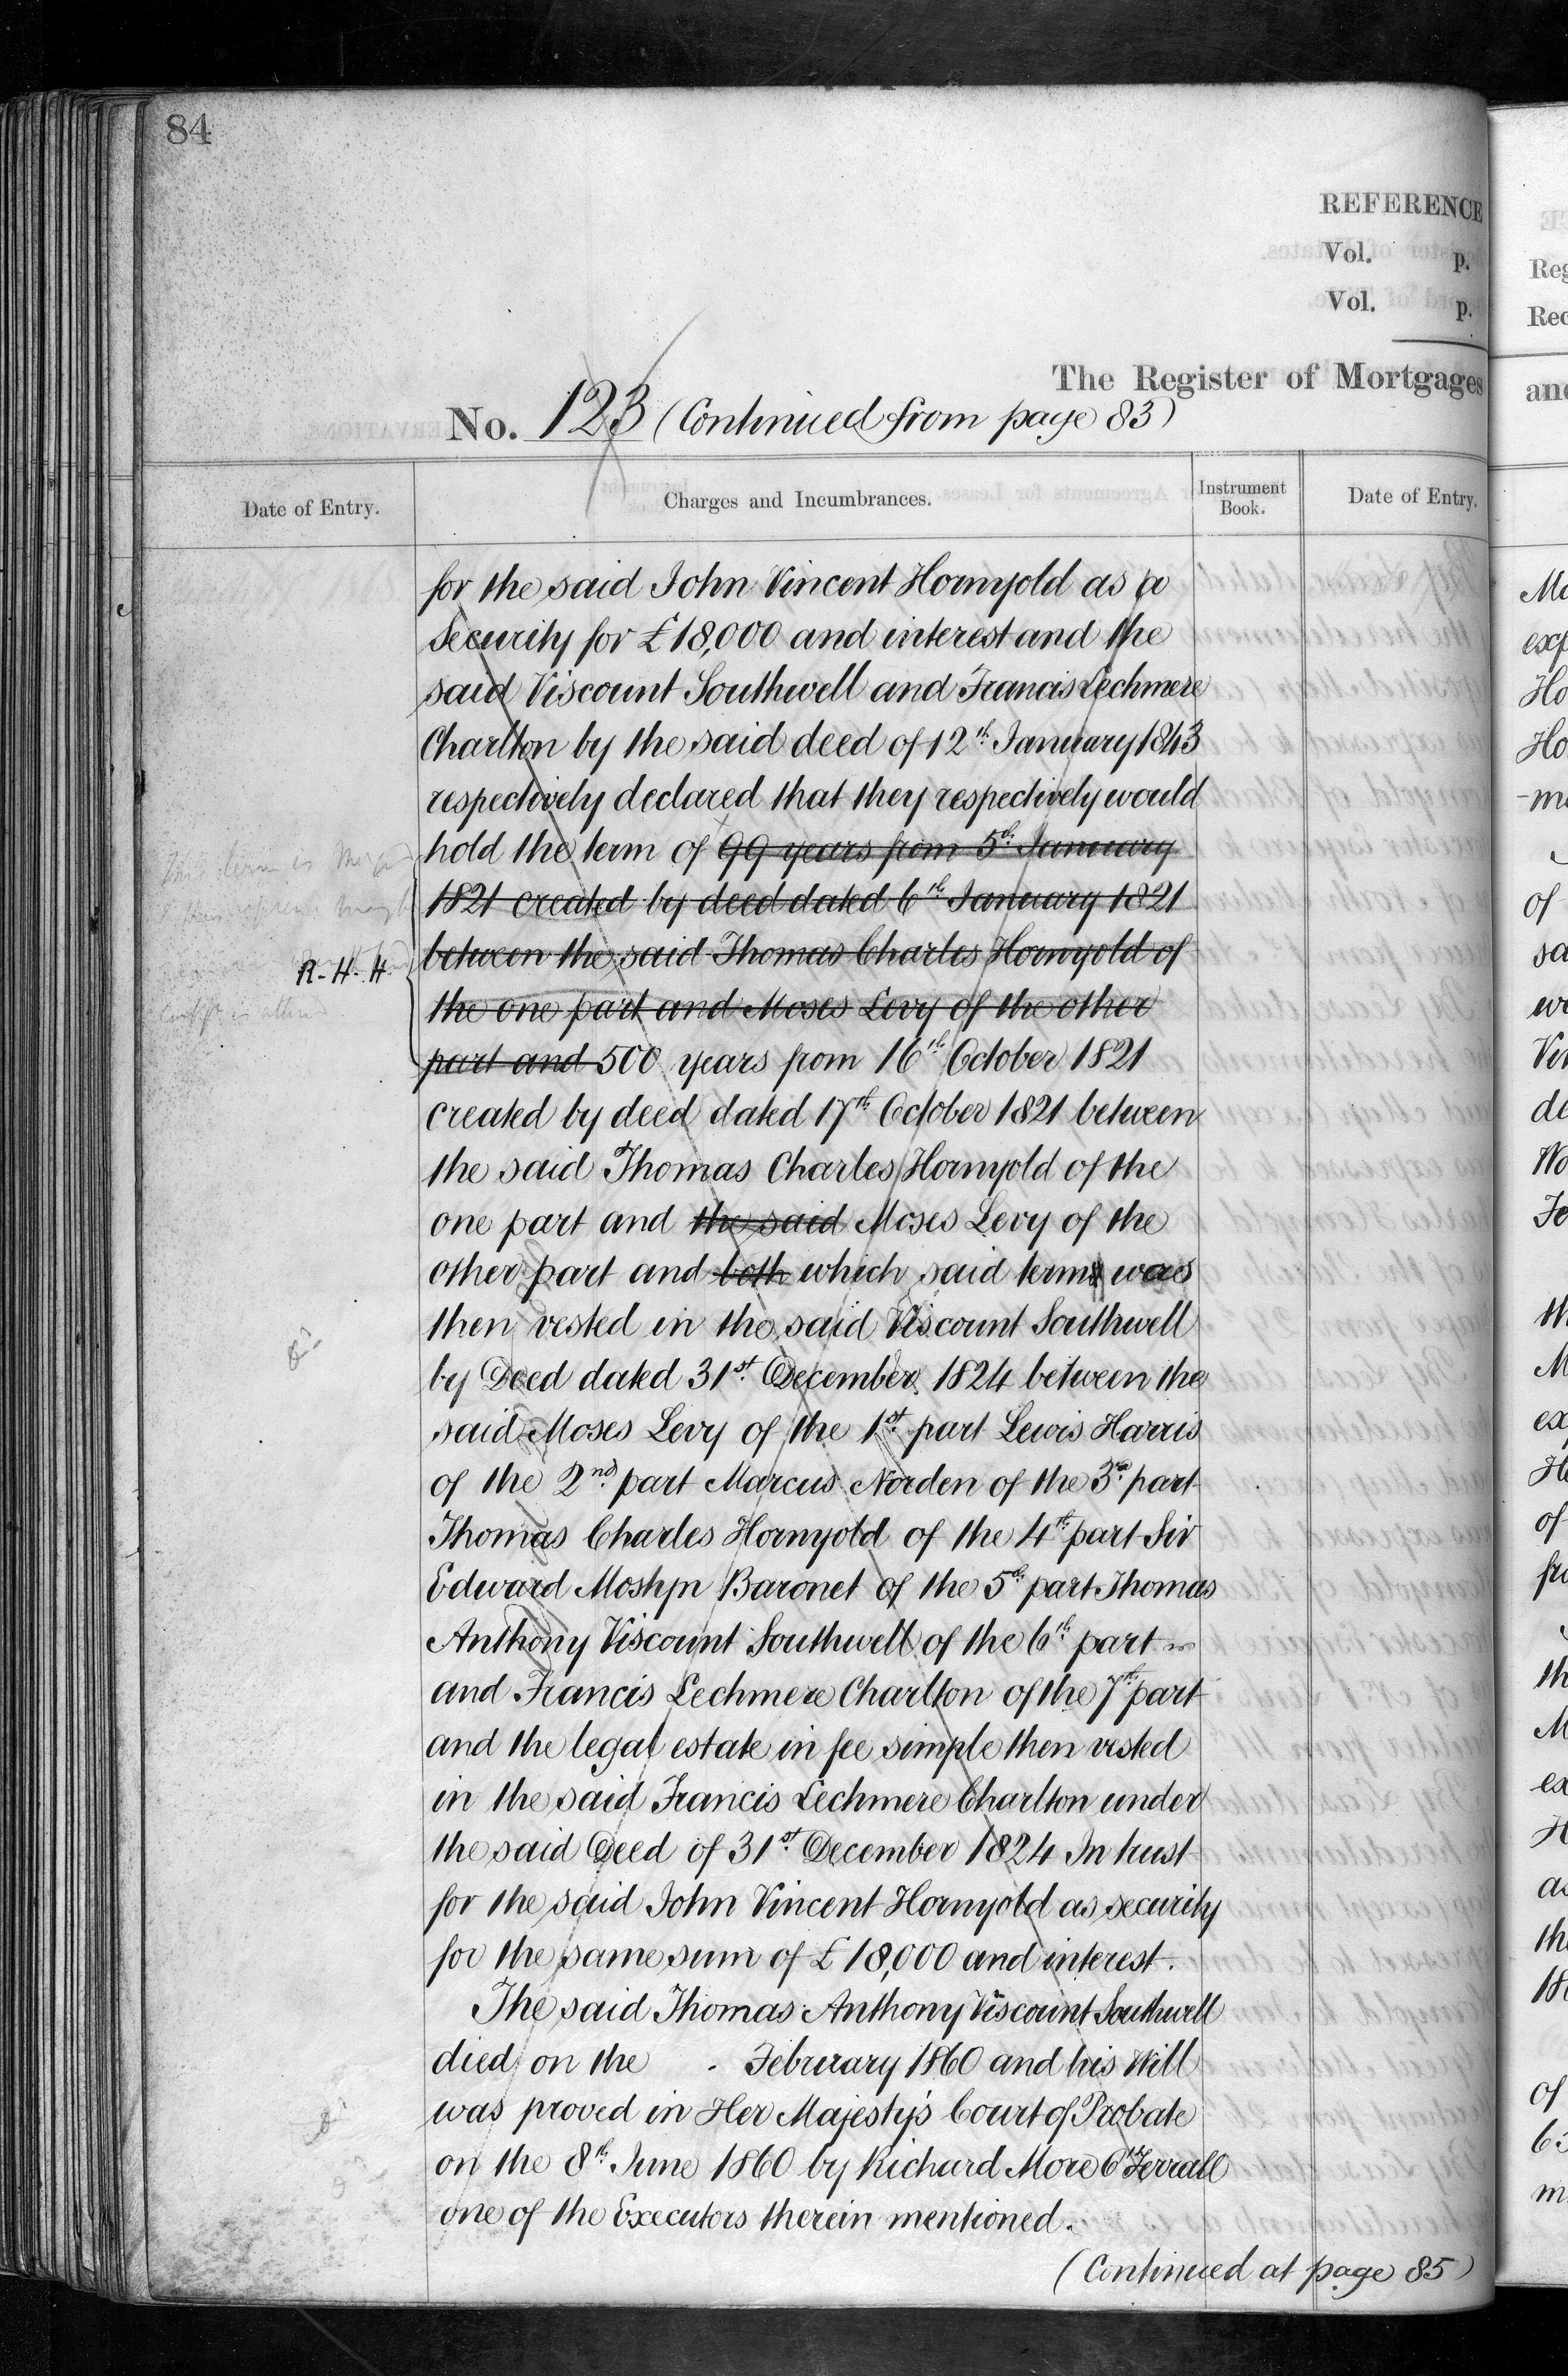 84
REFERENCE
Vol. p.
Vol. p.
The Register of Mortgages
No. 123 (Continued from page 83)
Date of Entry.
Charges and Incumbrances.
Instrument Book.
Date of Entry.
for the said John Vincent Hornyold as a
security for £18,000 and interest and the
said Viscount Southwell and Francis Lechmere
Charlton by the said deed of 12th January 1843
respectively declared that they respectively would
hold the term of 99 years from 5th January
1821 created by deed dated 6th January 1821
between the said Thomas Charles Hornyold of
R. H. H.
the one part and Moses Levy of the other
part and 500 years from 16th October 1821
created by deed dated 17th October 1821 between
the said Thomas Charles Hornyold of the
one part and the said Moses Levy of the
other part and both which said terms was
then vested in the said Viscount Southwell
by Deed dated 31st December 1824 between the
said Moses Levy of the 1st part Lewis Harris
of the 2nd part Marcus Norden of the 3rd part
Thomas Charles Hornyold of the 4th part Sir
Edward Mostyn Baronet of the 5th part Thomas
Anthony Viscount Southwell of the 6th part
and Francis Lechmere Charlton of the 7th part
and the legal estate in fee simple then vested
in the said Francis Lechmere Charlton under
the said Deed of 31st December 1824 In trust
for the said John Vincent Hornyold as security
for the same sum of £18,000 and interest.
The said Thomas Anthony Viscount Southwell
died on the February 1860 and his Will
was proved in Her Majesty's Court of Probate
on the 8th June 1860 by Richard More O'Ferrall
one of the Executors therein mentioned.
(Continued at page 85)